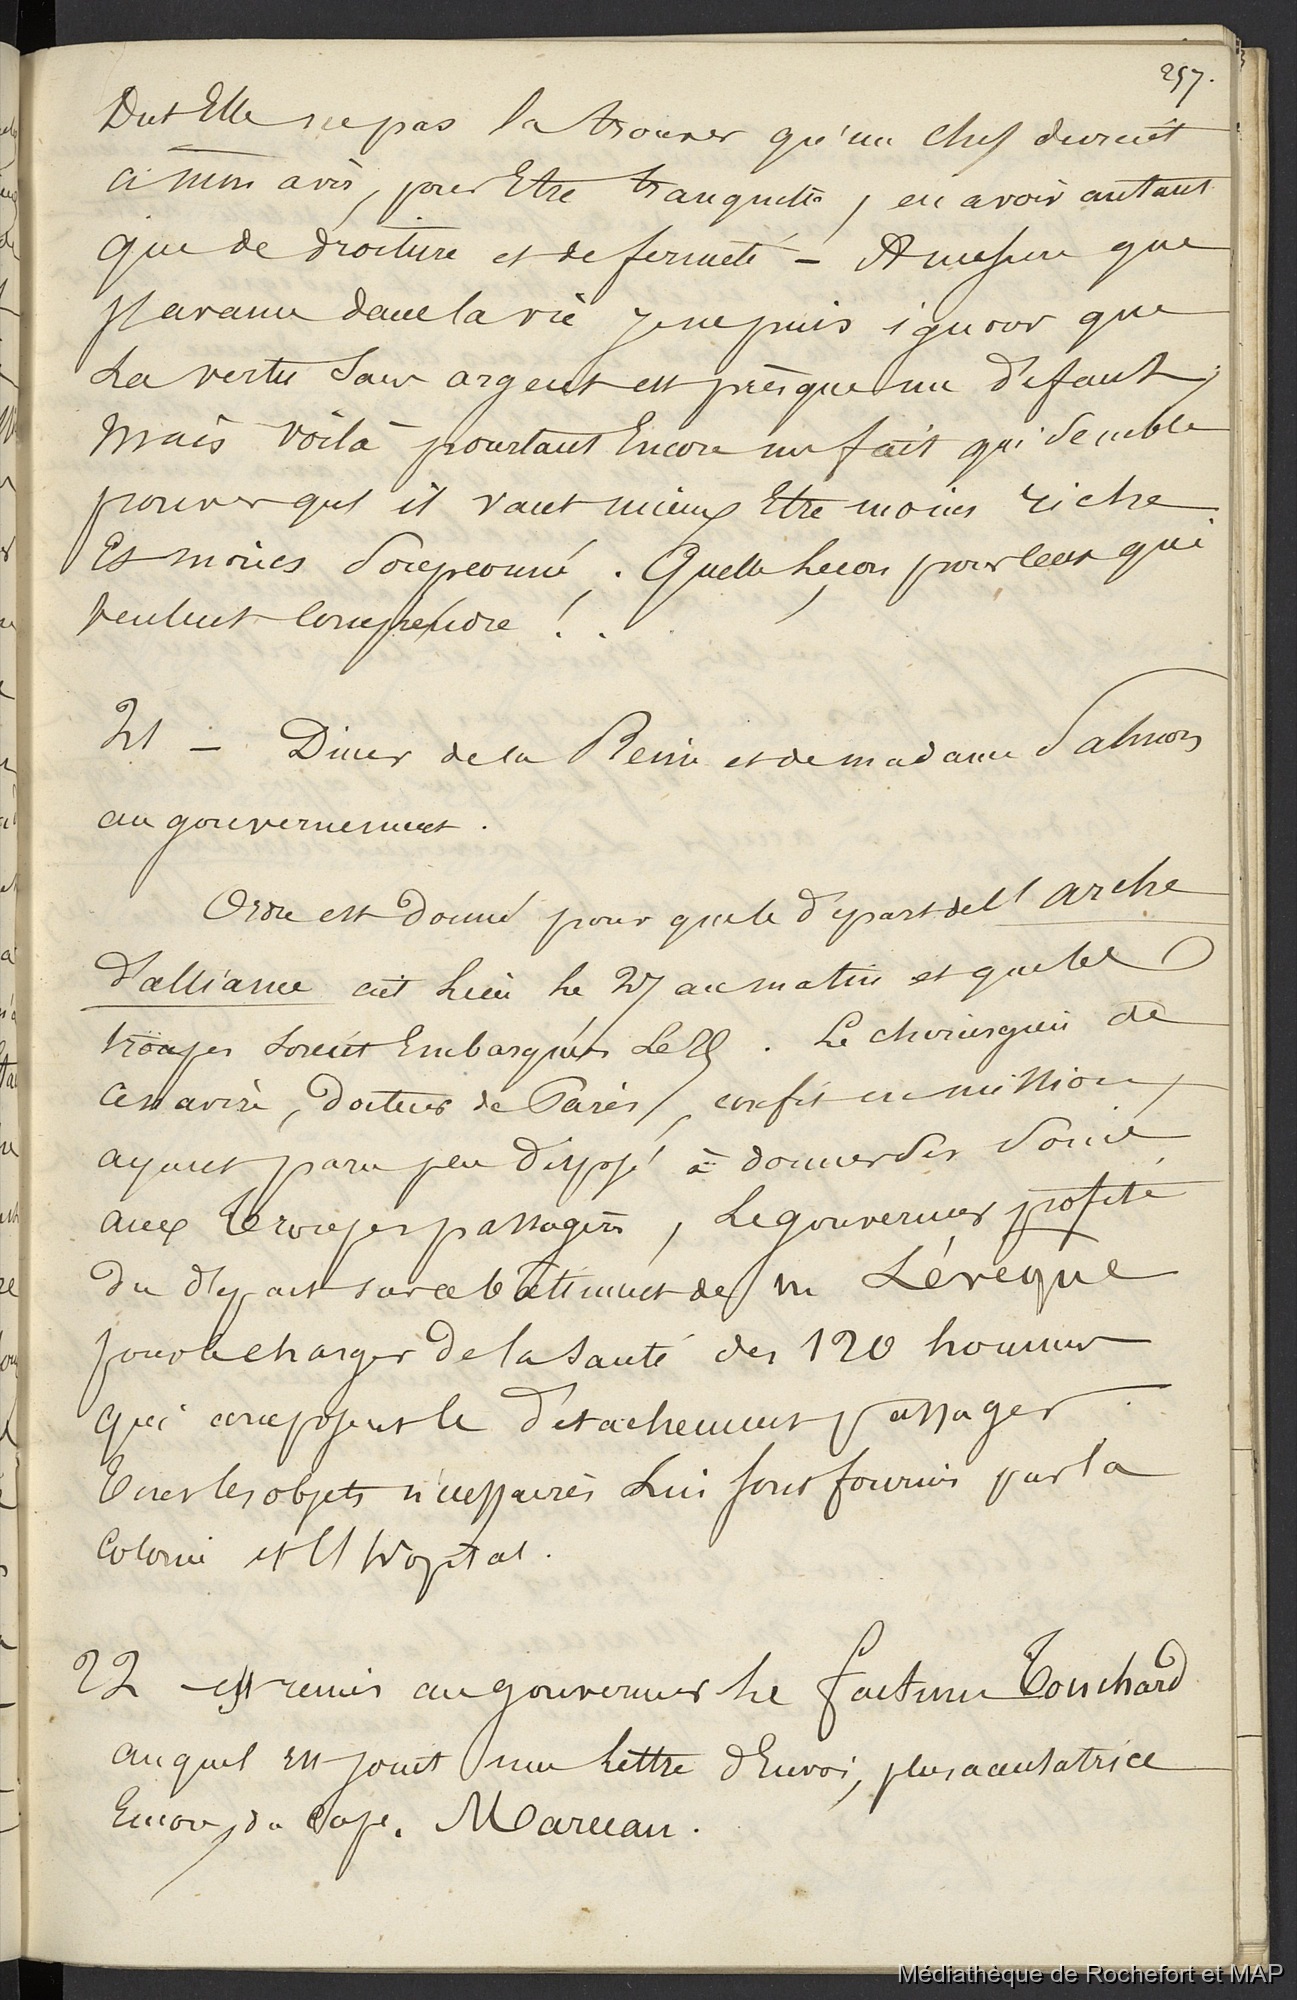 257.
Dut Elle ne pas la trouver qu'un chef devroit
à mon avis, pour Etre tranquille, en avoir autant
que de droiture et de fermeté - A mesure que
j'avance dans la vie je ne puis ignorer que
La vertu sans argent est prèsque un défaut,
Mais voilà pourtant Encore un fait qui semble
prouver qu'il vaut mieux Etre moins riche
Et moins soupconné. Quelle Leçon pour ceux qui
veulent comprendre !..
21 - Diner de la Reine et de madame Salmon
au gouvernement.
Ordre est donné pour que le départ de l'arche
d'alliance ait Lieu le 27 au matin et que les
troupes soient Embarquées Le . Le chirurgien de
ce navire, docteur de Paris, en mission,
ayant paru peu disposé à donner des soins
aux troupes passagères, Le gouverneur profite
du départ sur ce bâtiment de Mr Lévèque
pour le charger de la santé des 120 hommes
qui composent le détachement passager.
Tous les objets nécessaires Lui sont fournis par la
Colonie et l'hopital.
22 - est remis au gouverneur Le factum Touchard
auquel est joint une Lettre d'Envoi, plus accusatrice
Encore, du Cape. Marceau.
Médiathèque de Rochefort et MAP